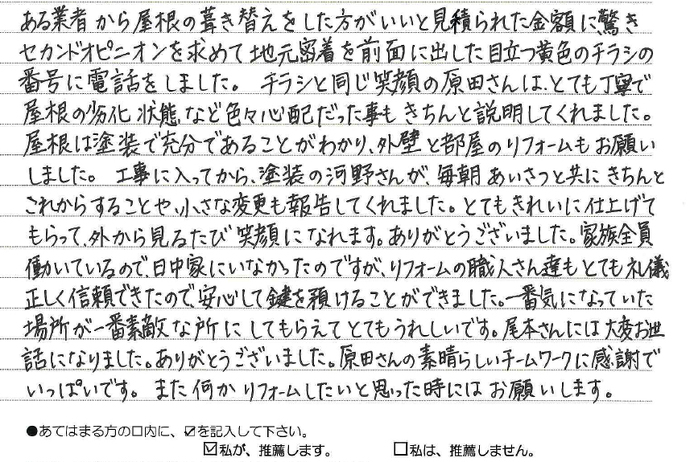 ある業者から屋根の葺き替えをした方がいいと見積られた金額に驚き
セカンドオピニオンを求めて地元密着を前面に出した目立つ黄色のチラシの
番号に電話をしました。 チラシと同じ笑顔の原田さんは、とても丁寧で
屋根の劣化状態など色々心配だった事もきちんと説明してくれました。
屋根は塗装で充分であることがわかり、外壁と部屋のリフォームもお願い
しました。 工事に入ってから、塗装の河野さんが、毎朝あいさつと共にきちんと
これからすることや、小さな変更も報告してくれました。とてもきれいに仕上げて
もらって、外から見るたび笑顔になれます。ありがとうございました。家族全員
働いているので、日中家にいなかったのですが、リフォームの職人さん達もとても礼儀
正しく信頼できたので、安心して鍵を預けることができました。一番気になっていた
場所が一番素敵な所にしてもらえてとてもうれしいです。尾本さんには大変お世
話になりました。ありがとうございました。原田さんの素晴らしいチームワークに感謝で
いっぱいです。 また何かリフォームしたいと思った時にはお願いします。
●あてはまる方の口内に、☑を記入して下さい。
☑私が、推薦します。 □私は、推薦しません。